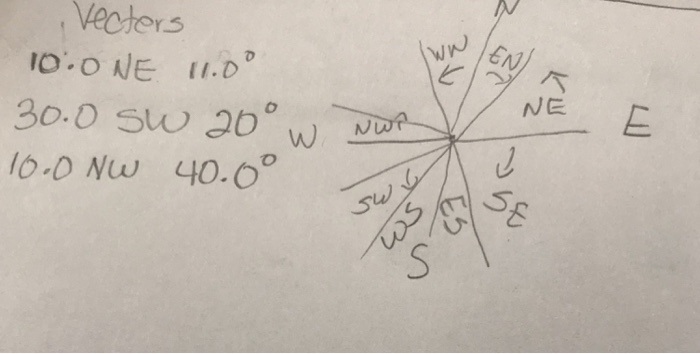 Vectors
10.0 NE 11.0°
30.0 SW 20°
10.0 NW 40.0°
N
WN
EN
NE
E
NW
W
SW
WS
S
ES
SE